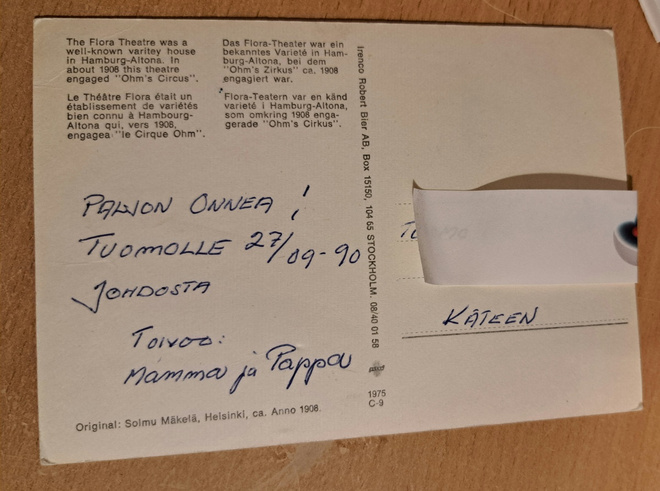 The Flora Theatre was a
well-known varitey house
in Hamburg-Altona. In
about 1908 this theatre
engaged "Ohm's Circus".
Le Théâtre Flora était un
établissement de variétés
bien connu à Hambourg-
Altona qui, vers 1908,
engagea "le Cirque Ohm".
Das Flora-Theater war ein
bekanntes Varieté in Ham-
burg-Altona, bei dem
"Ohm's Zirkus" ca. 1908
engagiert war.
Flora-Teatern var en känd
varieté i Hamburg-Altona,
som omkring 1908 enga-
gerade "Ohm's Cirkus".
PALJON ONNEA !
TUOMOLLE 27/09-90
JOHDOSTA
TOIVOO:
Mamma ja Pappa
Original: Solmu Mäkelä, Helsinki, ca. Anno 1908.
Irenco Robert Bier AB, Box 15150, 104 65 STOCKHOLM. 08/40 01 58
1975
C-9
KÄTEEN